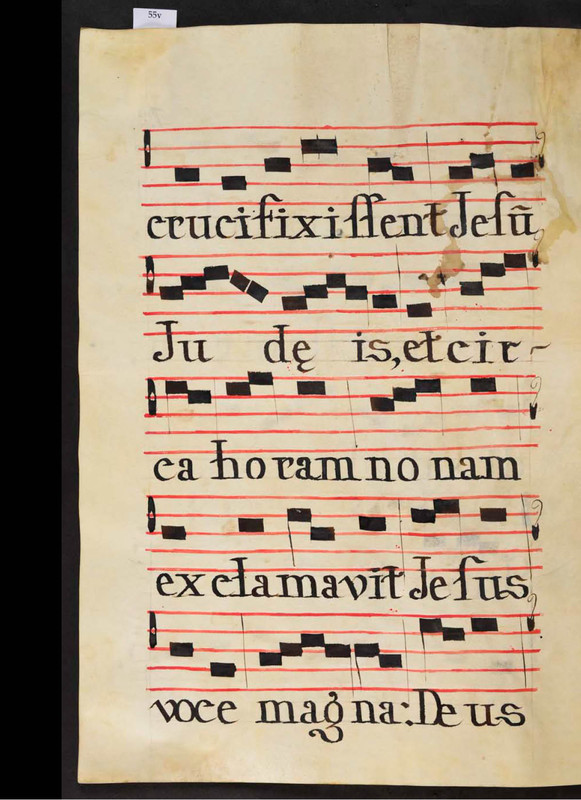 55v
crucifixiſſent Jeſũ
Ju dę is, et cir-
ca horam no nam
exclamavit Jeſus
voce magna: Deus